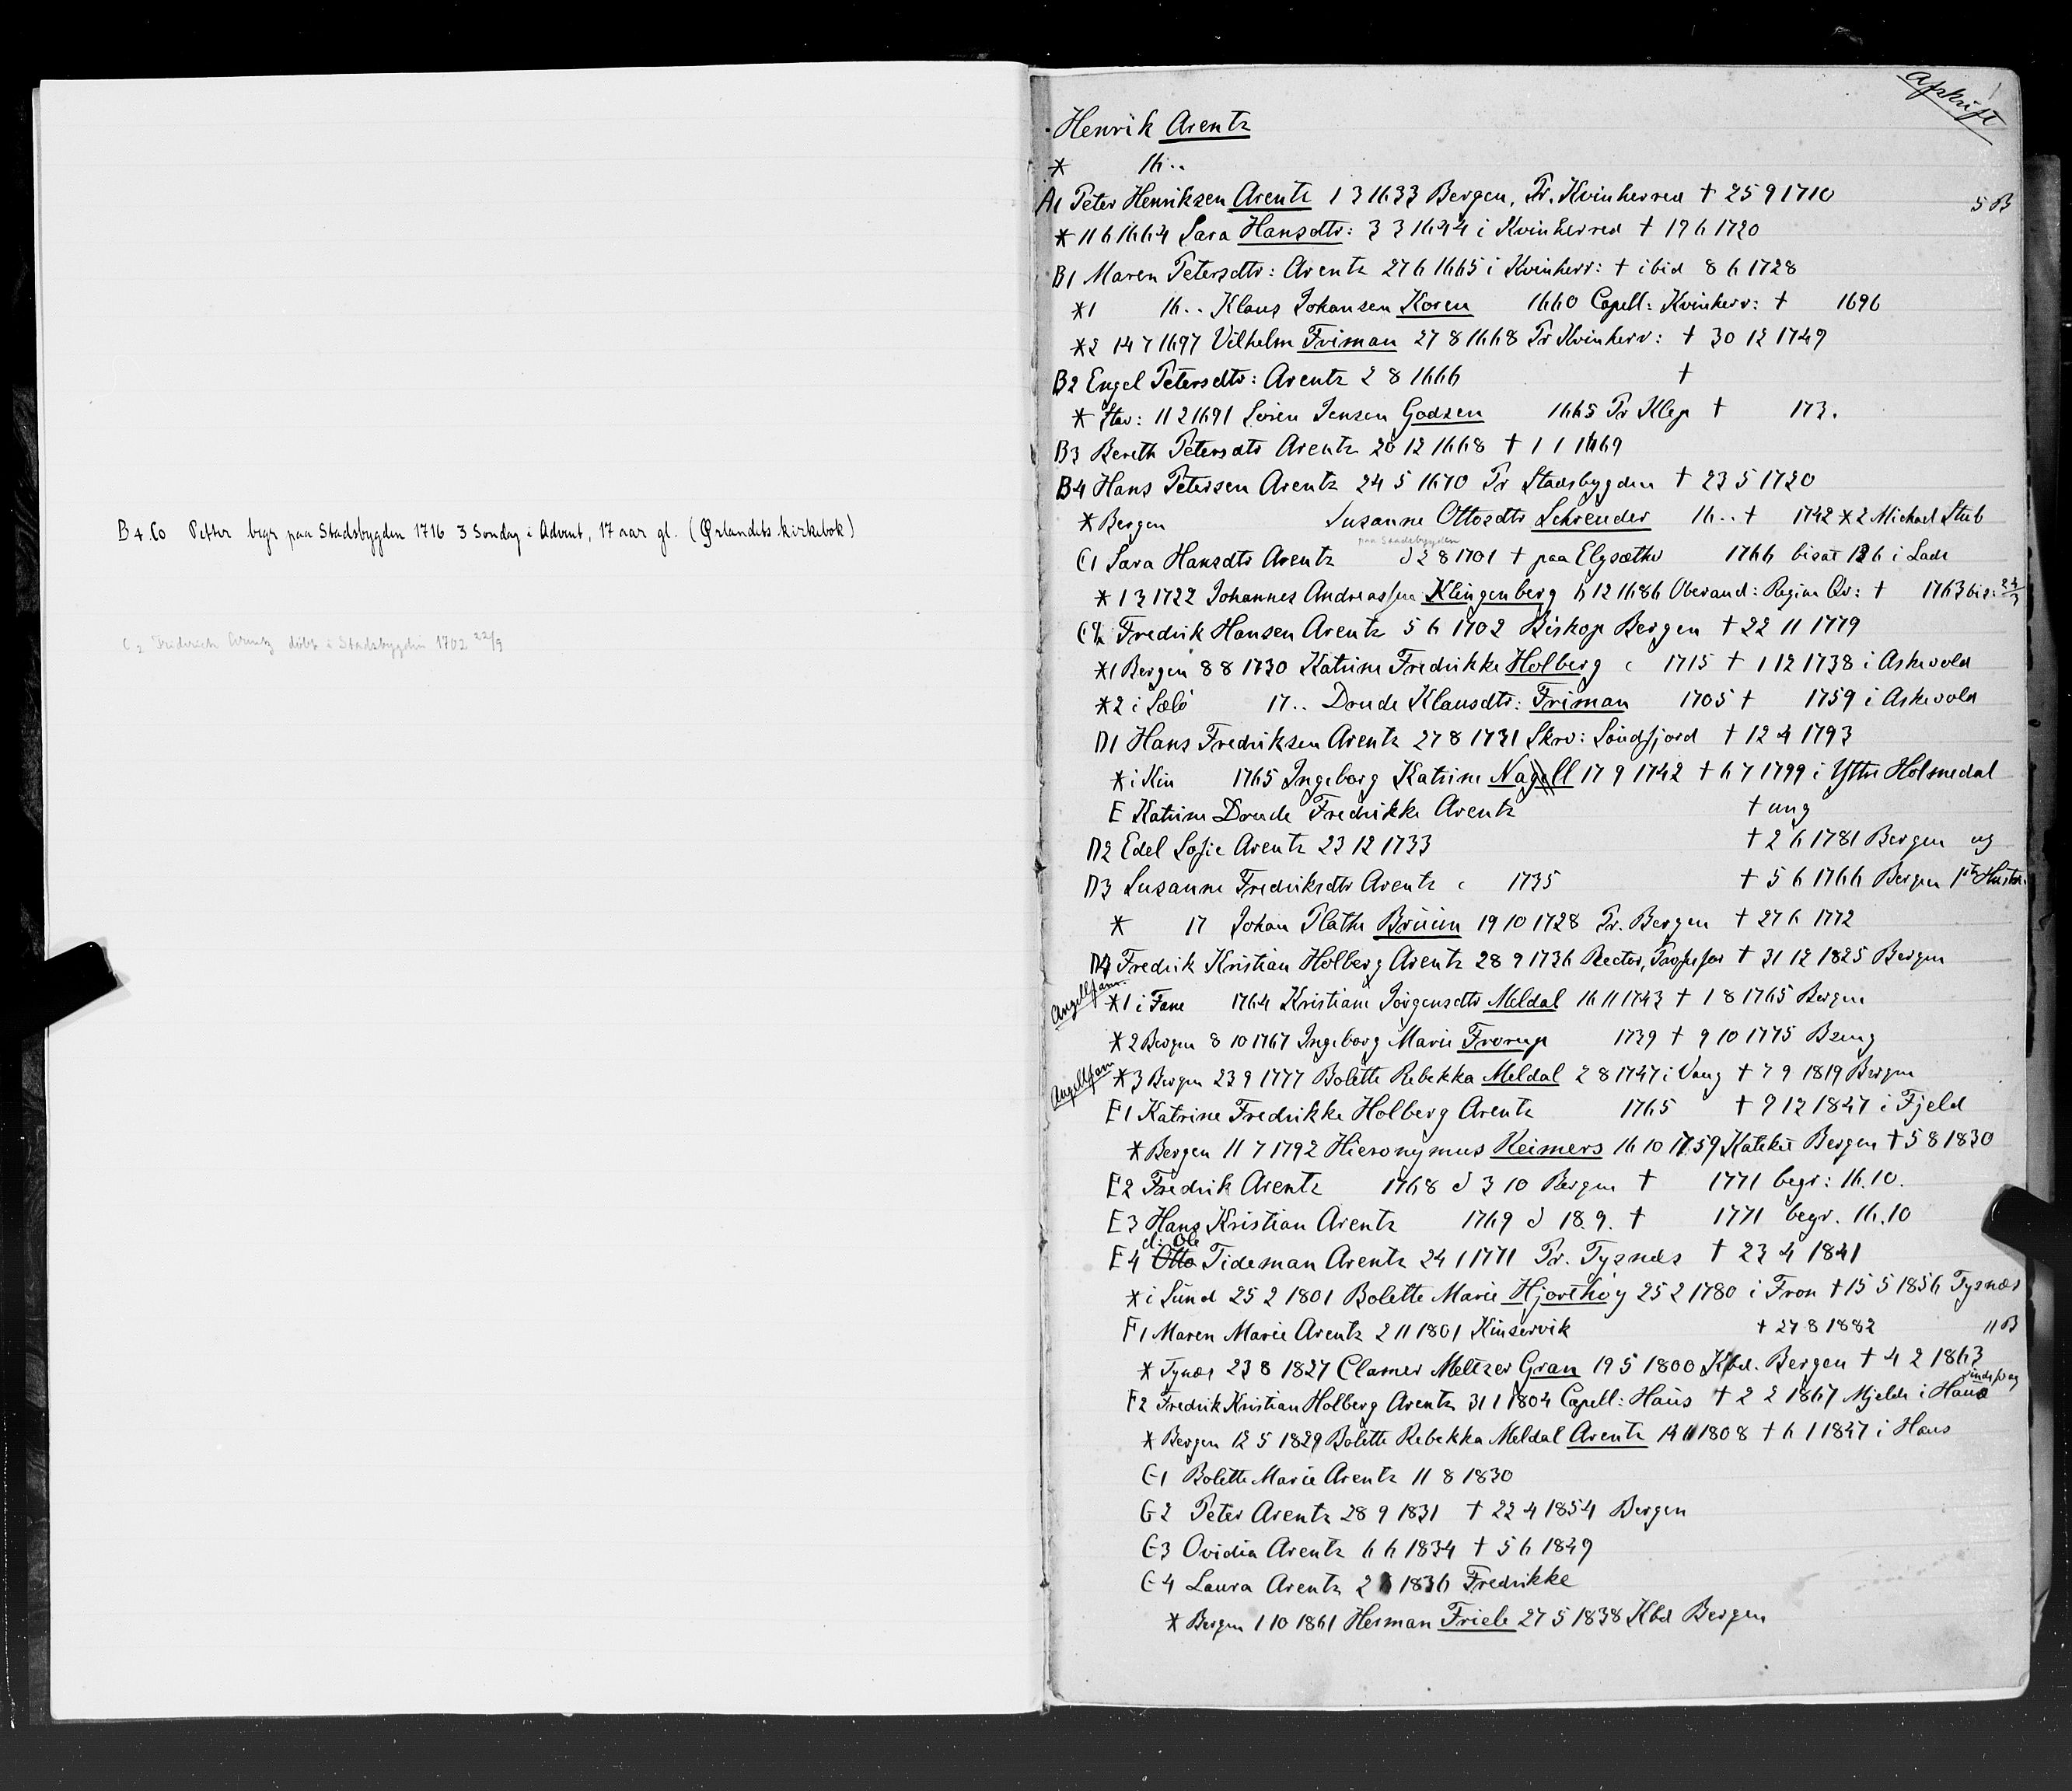 B4.C0 Petter begr paa Stadsbygden 1716 3 Sondag i Advent, 17 aar gl. (Ørlandets kirkebok)
C2 Friderich Arentz döbt i Stadsbygden 1702 22/9
Afskrift
1
Henrik Arentz
* 16..
A1 Peter Henriksen Arentz 1 3 1633 Bergen, Pr. Kvinherred † 25 9 1710 5 B
* 11 6 1664 Sara Hansdtr: 3 3 1644 i Kvinherred † 19 6 1720
B1 Maren Petersdtr: Arentz 27 6 1665 i Kvinherr: † ibid 8 6 1728
*1 16.. Klaus Johansen Koren 1660 Capell: Kvinherr: † 1696
*2 14 7 1697 Vilhelm Friman 27 8 1668 Pr Kvinherr: † 30 12 1749
B2 Engel Petersdtr: Arentz 2 8 1666 †
* Stav: 11 2 1691 Søren Jensen Godzen 1665 Pr Klep † 173.
B3 Bereth Petersdtr Arentz 20 12 1668 † 1 1 1669
B4 Hans Petersen Arentz 24 5 1670 Pr Stadsbygden † 23 5 1720
* Bergen Susanne Ottosdtr Schreuder 16.. † 1742 *2 Michael Stub
C1 Sara Hansdtr Arentz paa Stadsbygden d 2 8 1701 † paa Elgsæther 1766 bisat 13 6 i Lade
* 1 3 1722 Johannes Andreassen Klingenberg 6 12 1686 Oberaud: Regim Qv: † 1763 bis: 24/3
C2 Fredrik Hansen Arentz 5 6 1702 Biskop Bergen † 22 11 1779
*1 Bergen 8 8 1730 Katrine Fredrikke Holberg c 1715 † 1 12 1738 i Askevold
*2 i Selö 17.. Drude Klausdtr: Friman 1705 † 1759 i Askevold
D1 Hans Fredriksen Arentz 27 8 1731 Skrv: Söndfjord † 12 4 1793
* i Kin 1765 Ingeborg Katrine Nagell 17 9 1742 † 6 7 1799 i Yttre Holmedal
E Katrine Drude Fredrikke Arentz † ung
D2 Edel Sofie Arentz 23 12 1733 † 2 6 1781 Bergen ug
D3 Susanne Fredriksdtr Arentz c 1735 † 5 6 1766 Bergen 1ste Hustr.
* 17 Johan Plathe Brüün 19 10 1728 Pr. Bergen † 27 6 1772
D4 Fredrik Kristian Holberg Arentz 28 9 1736 Rector, Professor † 31 12 1825 Bergen
Angellfam. *1 i Fane 1764 Kristiane Jörgensdtr Meldal 16 11 1743 † 1 8 1765 Bergen
*2 Bergen 8 10 1767 Ingeborg Marie Frorup 1739 † 9 10 1775 Bseng
Angellfam *3 Bergen 23 9 1777 Bolette Rebekka Meldal 2 8 1747 i Vang † 7 9 1819 Bergen
E1 Katrine Fredrikke Holberg Arentz 1765 † 9 12 1847 i Fjeld
* Bergen 11 7 1792 Hieronymus Reimers 16 10 1759 Kateket Bergen † 5 8 1830
E2 Fredrik Arentz 1768 d 3 10 Bergen † 1771 begr: 16.10.
E3 Hans Kristian Arentz 1769 d 18.9. † 1771 begr. 16.10
d: Ole
E4 Otto Tideman Arentz 24 1 1771 Pr. Tysnes † 23 4 1841
* i Sund 25 2 1801 Bolette Marie Hjorthöy 25 2 1780 i Fron † 15 5 1856 Tysnæs
F1 Maren Marie Arentz 2 11 1801 Kinservik † 27 8 1882 11 B
* Tysnæs 23 8 1827 Clamer Meltzer Gran 19 5 1800 Kbd. Bergen † 4 2 1863
F2 Fredrik Kristian Holberg Arentz 31 1 1804 Capell: Haus † 2 2 1867 Mjelde i Haus
* Bergen 12 5 1829 Bolette Rebekka Meldal Arentz 14 11 1808 † 6 1 1847 i Haus
G1 Bolette Marie Arentz 11 8 1830
G2 Peter Arentz 28 9 1831 † 22 4 1854 Bergen
G3 Ovidia Arentz 6 6 1834 † 5 6 1849
G4 Laura Arentz 2 1836 Fredrikke
* Bergen 1 10 1861 Herman Friele 27 5 1838 Kbd Bergen